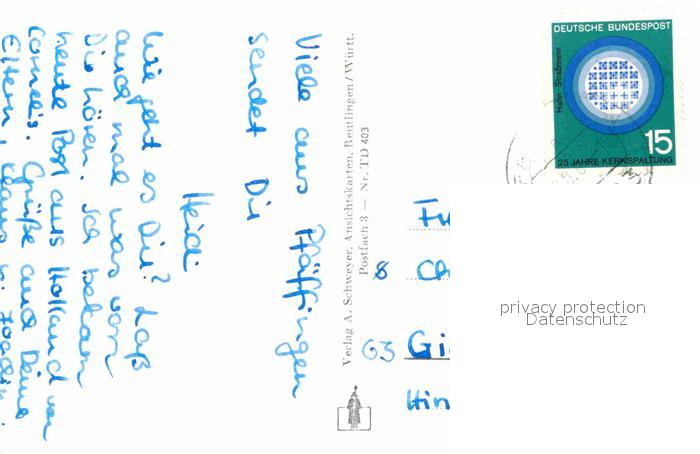 Viele aus Pfäffingen
sendet Dir
Heidi
Wie geht es Dir? Laß
auch mal was von
Dir hören. Ich bekam
heute Post aus Holland von
Cornelis. Grüße auch Deine
Eltern, Klaus u.
Verlag A. Schweyer, Ansichtskarten, Reutlingen / Württ.
Postfach 3 — Nr. TD 403
DEUTSCHE BUNDESPOST
Hahn Straßmann
15
25 JAHRE KERNSPALTUNG
Fr
8
63 Gi
Hin
privacy protection
Datenschutz